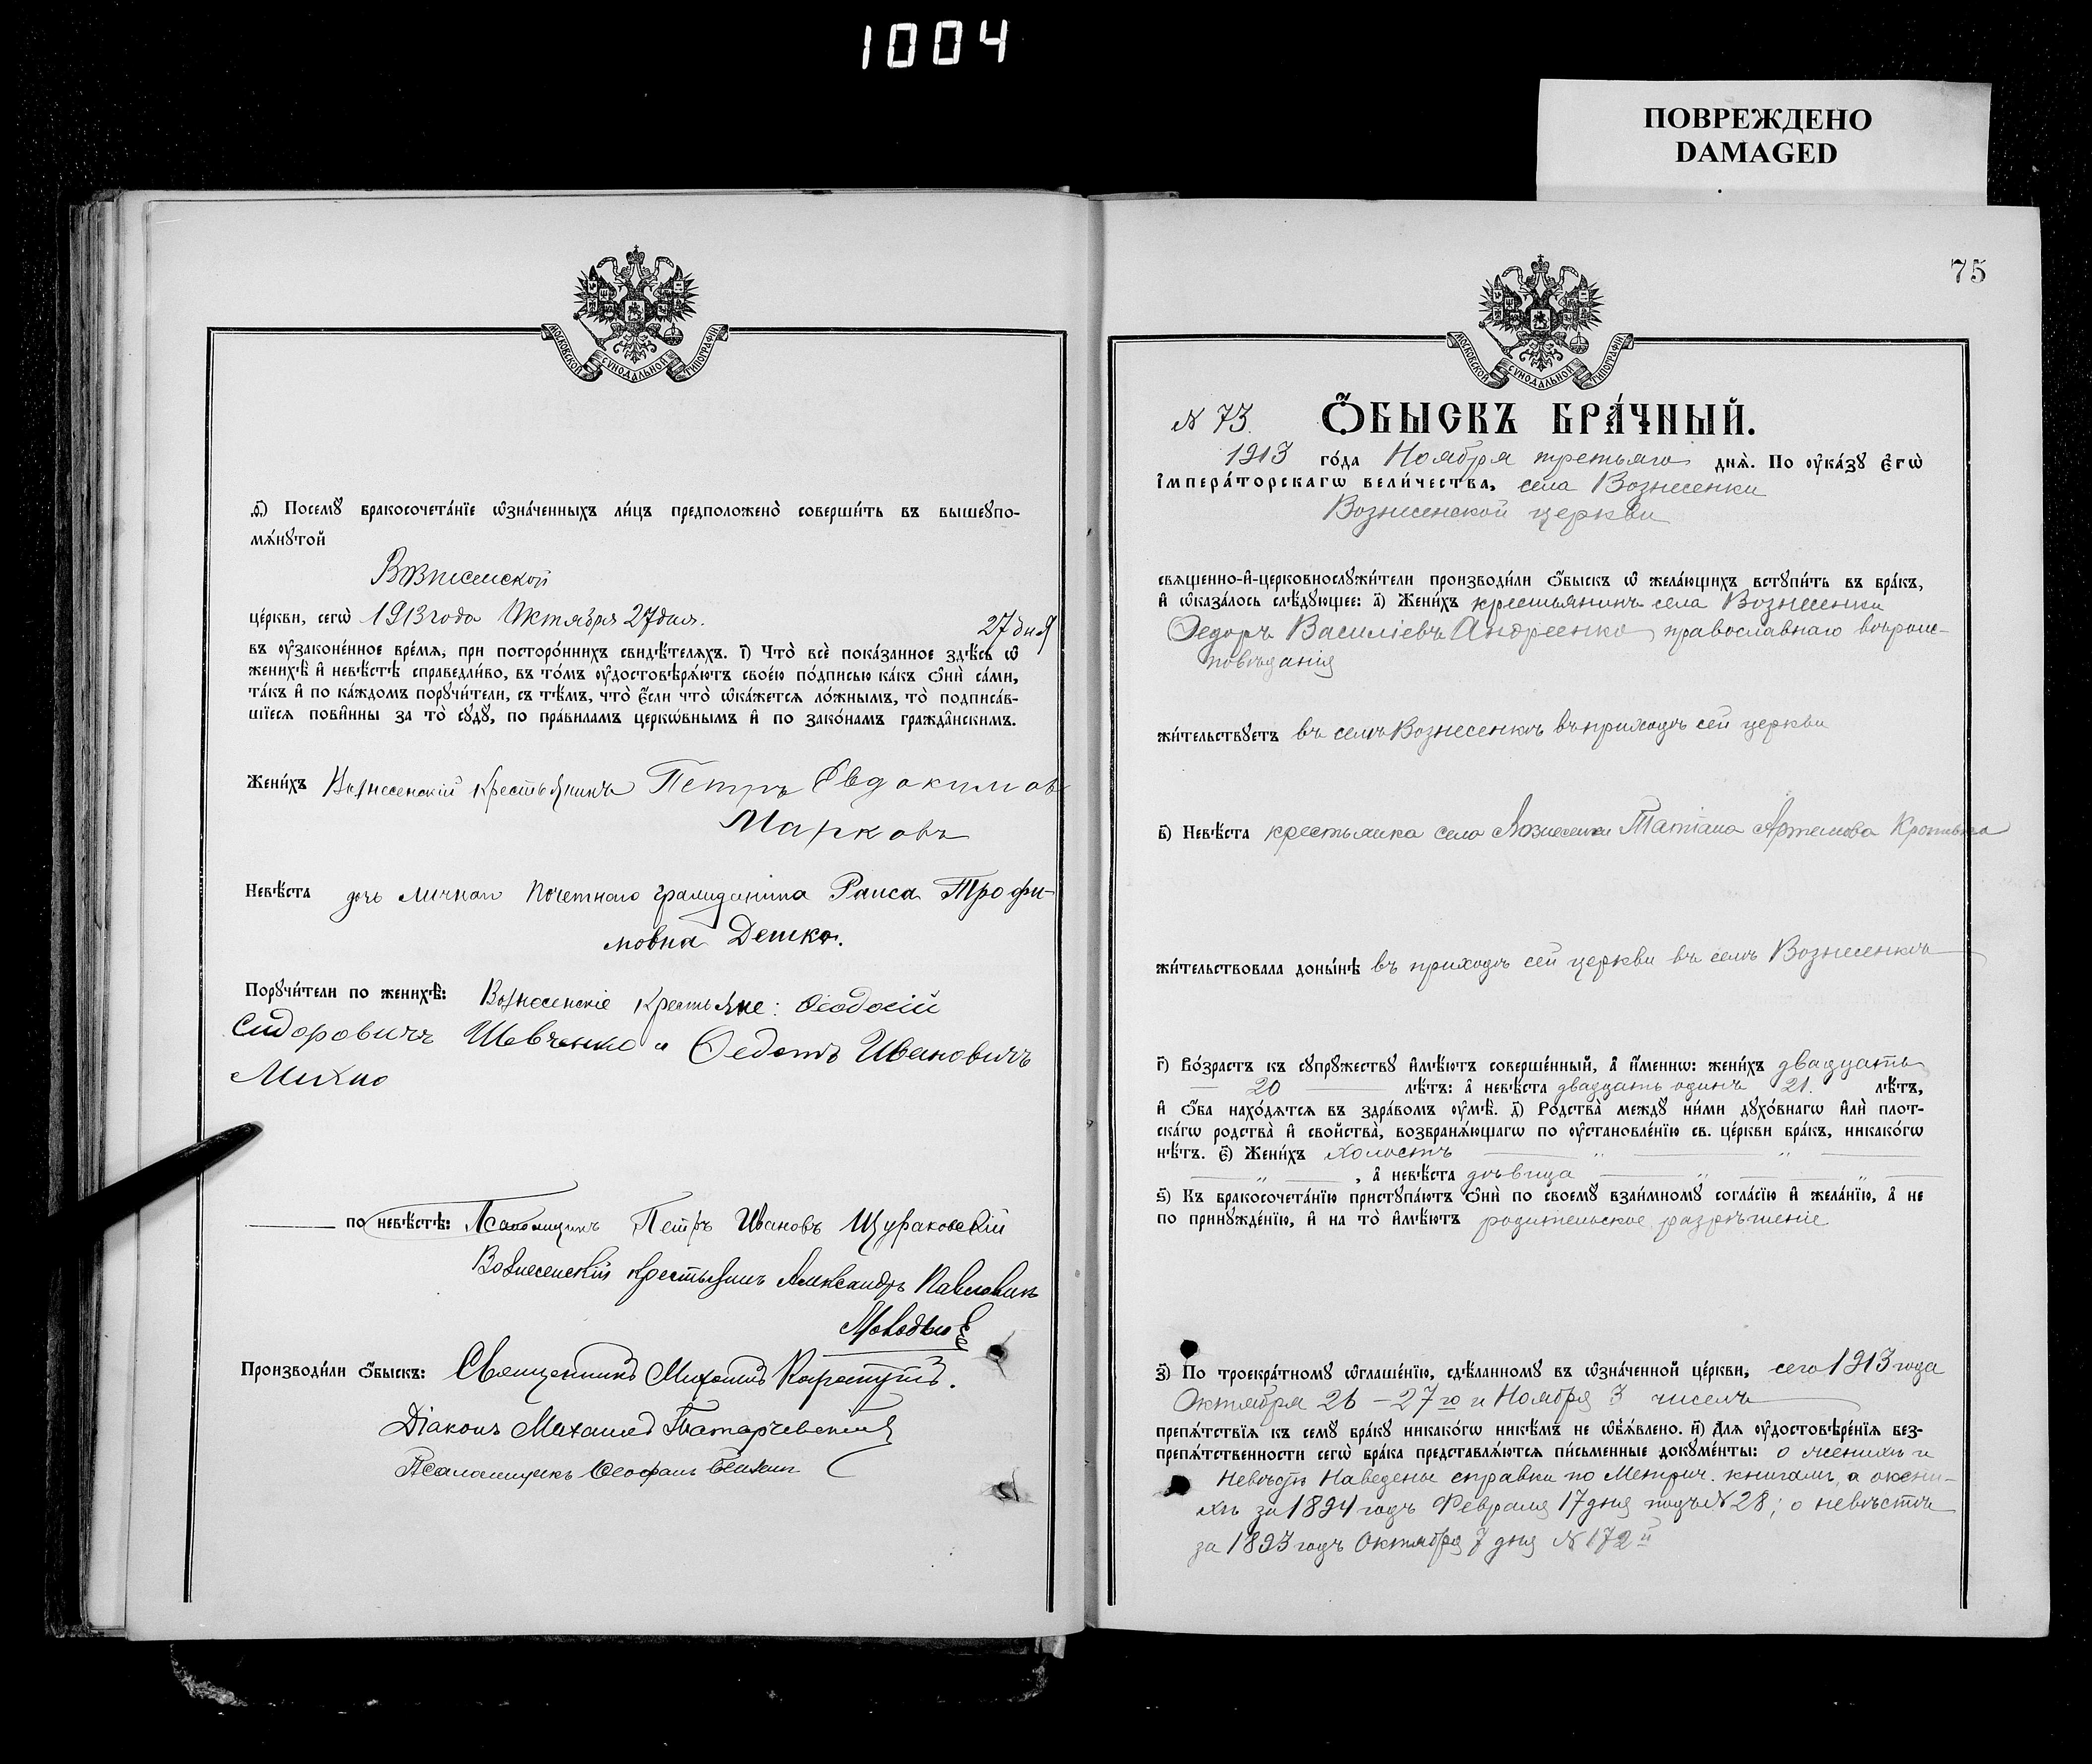 1004
ПОВРЕЖДЕНО
DAMAGED
МОСКОВСКОЙ СУНОДАЛЬНОЙ ТИПОГРАФІИ
ѳ҃) Посемꙋ бракосочета́нїе ѡзна́ченныхъ ли́цъ предположено̀ соверши́ть въ вышеꙋпо-
мѧ́нꙋтой
Вознесенской
це́ркви, сегѡ̀ 1913 года Октября 27 дня.
27 дня
въ оу҆зако́не́нное вре́мѧ, при посторо́ннихъ свидѣ́телѧхъ. і҃) Что̀ всѐ пока́занное здѣ́сь ѡ
женихѣ̀ и҆ невѣ́стѣ справедли́во, въ то́мъ оу҆достовѣрѧ́ютъ свое́ю по́дписью ка́къ ѻ҆нѝ са́ми,
та́къ и҆ по ка́ждомъ порꙋчи́тели, съ тѣ́мъ, что̀ є҆́сли что̀ ѡ҆ка́жетсѧ ло́жнымъ, то̀ подписа́в-
шїесѧ пови́нны за то̀ сꙋдꙋ̀, по пра́виламъ церко́внымъ и҆ по зако́намъ гражда́нскимъ.
Жени́хъ Вознесенскій крестьянинъ Петръ Евдокимов
Марковъ
Невѣ́ста дочь личнаго почетнаго гражданина Раиса Трофи-
мовна Дешко.
Порꙋчи́тели по женихѣ̀: Вознесенскіе крестьяне: Ѳеодосій
Сидоровичъ Шевченко и Ѳедотъ Ивановичъ
Михно
по невѣ́стѣ: Псаломщикъ Петръ Ивановъ Щураковскій
Вознесенскій крестьянинъ Александръ Павловичъ
Производи́ли ѻ҆́быскъ: Священникъ Михаилъ
Діаконъ Михаилъ Татарчевскій
Псаломщикъ Ѳеофанъ
75
МОСКОВСКОЙ СУНОДАЛЬНОЙ ТИПОГРАФІИ
N 73. Ѻ҆́БЫСКЪ БРА́ЧНЫЙ.
1913 го́да Ноября третьяго днѧ̀. По оу҆ка́зꙋ є҆гѡ̀
і҆мпера́торскагѡ вели́чества, села Вознесенки
Вознесенской церкви
свѧщенно-и҆-церковнослꙋжи́тели производи́ли ѻ҆́быскъ ѡ҆ жела́ющихъ встꙋпи́ть въ бра́къ,
и҆ ѡ҆каза́лось слѣ́дꙋющее: а҃) Жени́хъ крестьянинъ села Вознесенки
Ѳедоръ Василіевъ Андреенко, православнаго вѣроис-
повѣданія
жи́тельствꙋетъ въ селѣ Вознесенкѣ въ приходѣ сей церкви
в҃) Невѣ́ста крестьянка села Вознесенки Татіана Артемова
жи́тельствовала доны́нѣ въ приходѣ сей церкви въ селѣ Вознесенкѣ
г҃) Во́зрастъ къ сꙋпрꙋ́жествꙋ и҆мѣ́ютъ соверше́нный, а҆ и҆́менно: жени́хъ двадцать
20 лѣ́тъ: а҆ невѣ́ста двадцать одинъ 21. лѣ́тъ,
и҆ ѻ҆́ба нахо́дѧтсѧ въ здра́вомъ оу҆мѣ̀. д҃) Родства̀ междꙋ̀ ни́ми дꙋхо́внагѡ и҆лѝ плот-
ска́гѡ родства̀ и҆ свойства̀, возбранѧ́ющагѡ по оу҆становле́нїю св. це́ркви бра́къ, никако́гѡ
нѣ́тъ. є҃) Жени́хъ холостъ „ „
„ , а҆ невѣ́ста дѣвица „
ѕ҃) Къ бракосочета́нїю пристꙋпа́ютъ ѻ҆нѝ по своемꙋ̀ взаи́мномꙋ согла́сїю и҆ жела́нїю, а҆ не
по принꙋжде́нїю, и҆ на то̀ и҆мѣ́ютъ родительское разрѣшеніе
з҃) По троекра́тномꙋ ѡ҆глаше́нїю, сдѣ́ланномꙋ въ ѡ҆зна́ченной це́ркви, сего 1913 года
Октября 26 – 27 го и Ноября 3 числъ
препѧ́тствїѧ къ семꙋ̀ бра́кꙋ никако́гѡ никѣ́мъ не ѡ҆б̾ѧ́влено. и҃) Длѧ̀ оу҆достовѣре́нїѧ без-
препѧ́тственности сегѡ̀ бра́ка представлѧ́ютсѧ пи́сьменные докꙋме́нты: о женихѣ и
невѣстѣ наведены справки по Метрич. книгамъ, о жени-
хѣ за 1894 годъ Февраля 17 дня подъ N 28; о невѣстѣ
за 1893 годъ Октября 7 дня N 172й